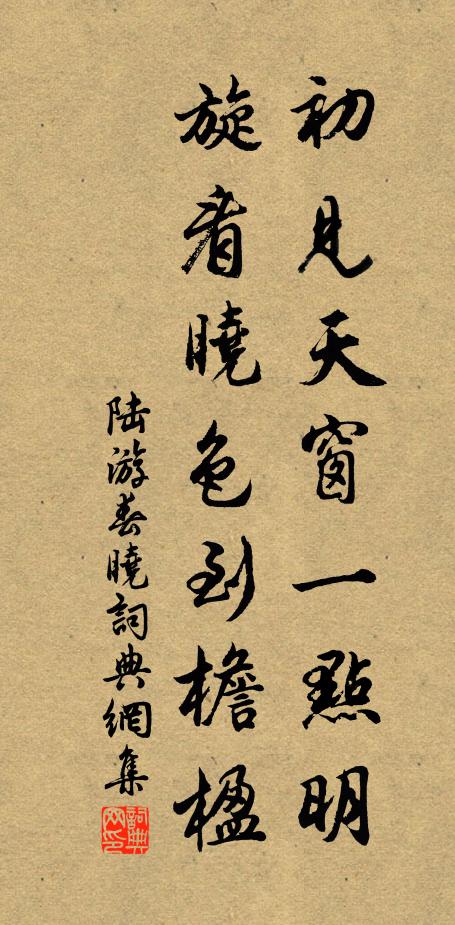 初見天窗一點明
旋看曉色到檐楹
陆游春曉詞典網集
詞典网印